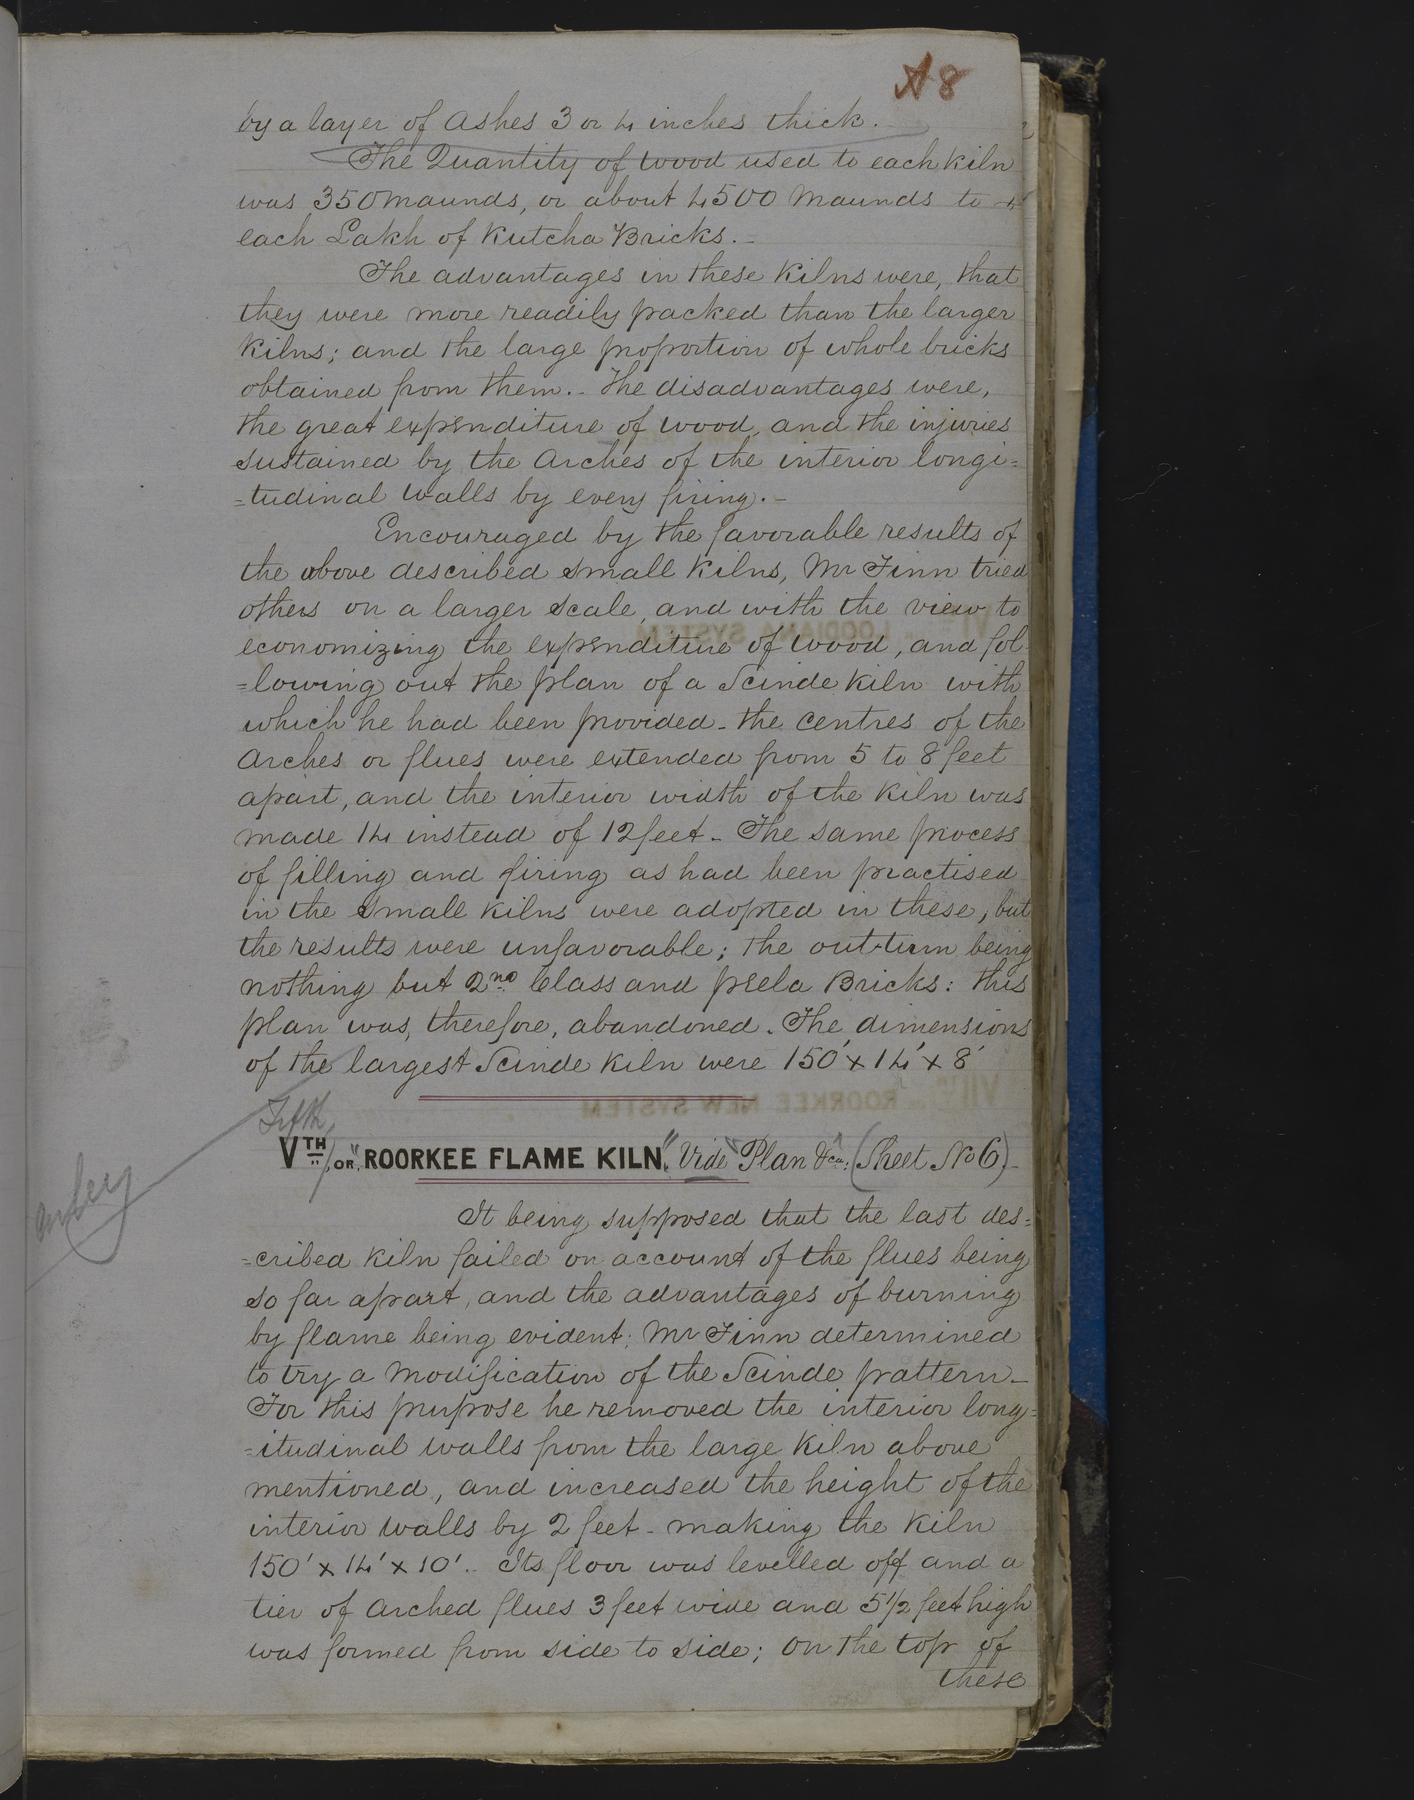 A8
by a layer of Ashes 3 or 4 inches thick.
The Quantity of wood used to each kiln
was 350 maunds, or about 4500 Maunds to
each Lakh of Kutcha Bricks._
The advantages in these Kilns were, that
they were more readily packed than the larger
Kilns; and the large proportion of whole bricks
obtained from them._ The disadvantages were,
the great expenditure of wood, and the injuries
sustained by the Arches of the interior longi=
=tudinal walls by every firing._
Encouraged by the favorable results of
the above described small Kilns, Mr Finn tried
others on a larger scale, and with the view to
economizing the expenditure of wood, and fol-
=lowing out the plan of a Scinde Kiln with
which he had been provided_ the centres of the
Arches or flues were extended from 5 to 8 feet
apart, and the interior width of the Kiln was
made 14 instead of 12 feet_ The same process
of filling and firing as had been practised
in the small kilns were adopted in these, but
the results were unfavorable; the out-turn being
nothing but 2nd Class and peela Bricks: this
plan was, therefore, abandoned. The dimensions
of the largest Scinde Kiln were 150' x 14' x 8'
Fifth
VTH OR "ROORKEE FLAME KILN" Vide "Plan &ca: (Sheet No 6)_
It being supposed that the last des=
=cribed kiln failed on account of the flues being
so far apart, and the advantages of burning
by flame being evident; Mr Finn determined
to try a modification of the Scinde pattern_
For this purpose he removed the interior long=
=itudinal walls from the large Kiln above
mentioned, and increased the height of the
interior walls by 2 feet_ making the Kiln
150' x 14' x 10'._ Its floor was levelled off and a
tier of arched flues 3 feet wide and 5 1/2 feet high
was formed from side to side; on the top of
these